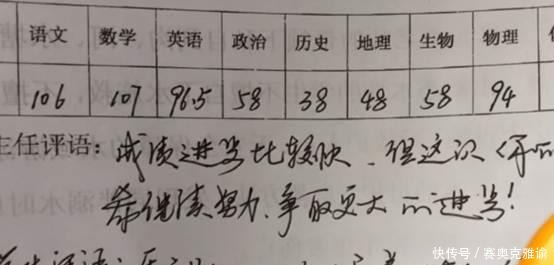 语文 数学 英语 政治 历史 地理 生物 物理
106 107 96.5 58 38 48 58 94
主任评语：成绩进步比较快，但这次
希继续努力、争取更大的进步！
快传号／赛奥克雅谕